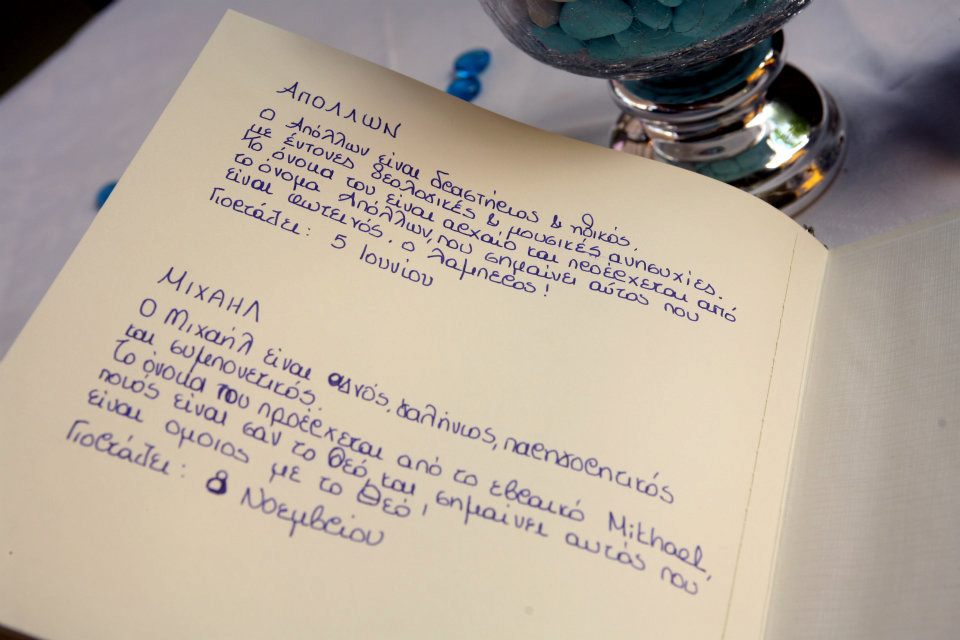 ΑΠΟΛΛΩΝ
Ο Απόλλων είναι δραστήριος & ηθικός.
με έντονες θεολογικές & μουσικές ανησυχίες.
Το όνομα του είναι αρχαίο και προέρχεται από
το όνομα Απόλλων, που σημαίνει αύτός που
είναι φωτεινός. ο λαμπερος!
Γιορτάζει: 5 Ιουνίου
ΜΙΧΑΗΛ
Ο Μιχαήλ είναι αγνός, γαλήνιος, παρηγορητικός
και συμπονετικός.
Το όνομα του προέρχεται από το εβραικό Mikhael,
ποιός είναι σαν το Θεό, και σημαίνει αυτός που
είναι ομοιος με το Θεό!
Γιορτάζει: 8 Νοεμβρίου